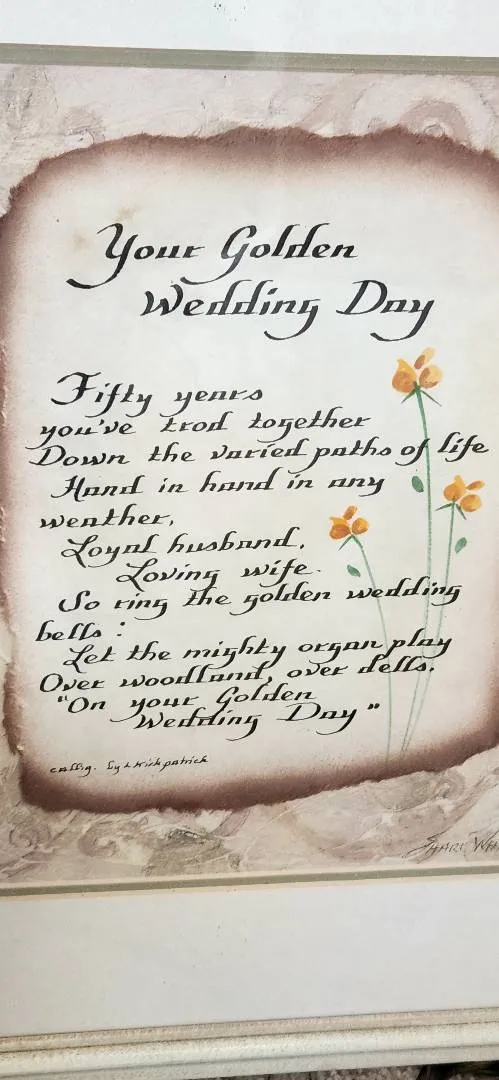 Your Golden
Wedding Day
Fifty years
you've trod together
Down the varied paths of life
Hand in hand in any
weather,
Loyal husband,
Loving wife.
So ring the golden wedding
bells :
Let the mighty organ play
Over woodland, over dells.
"On your Golden
Wedding Day"
callig. by L Kirkpatrick